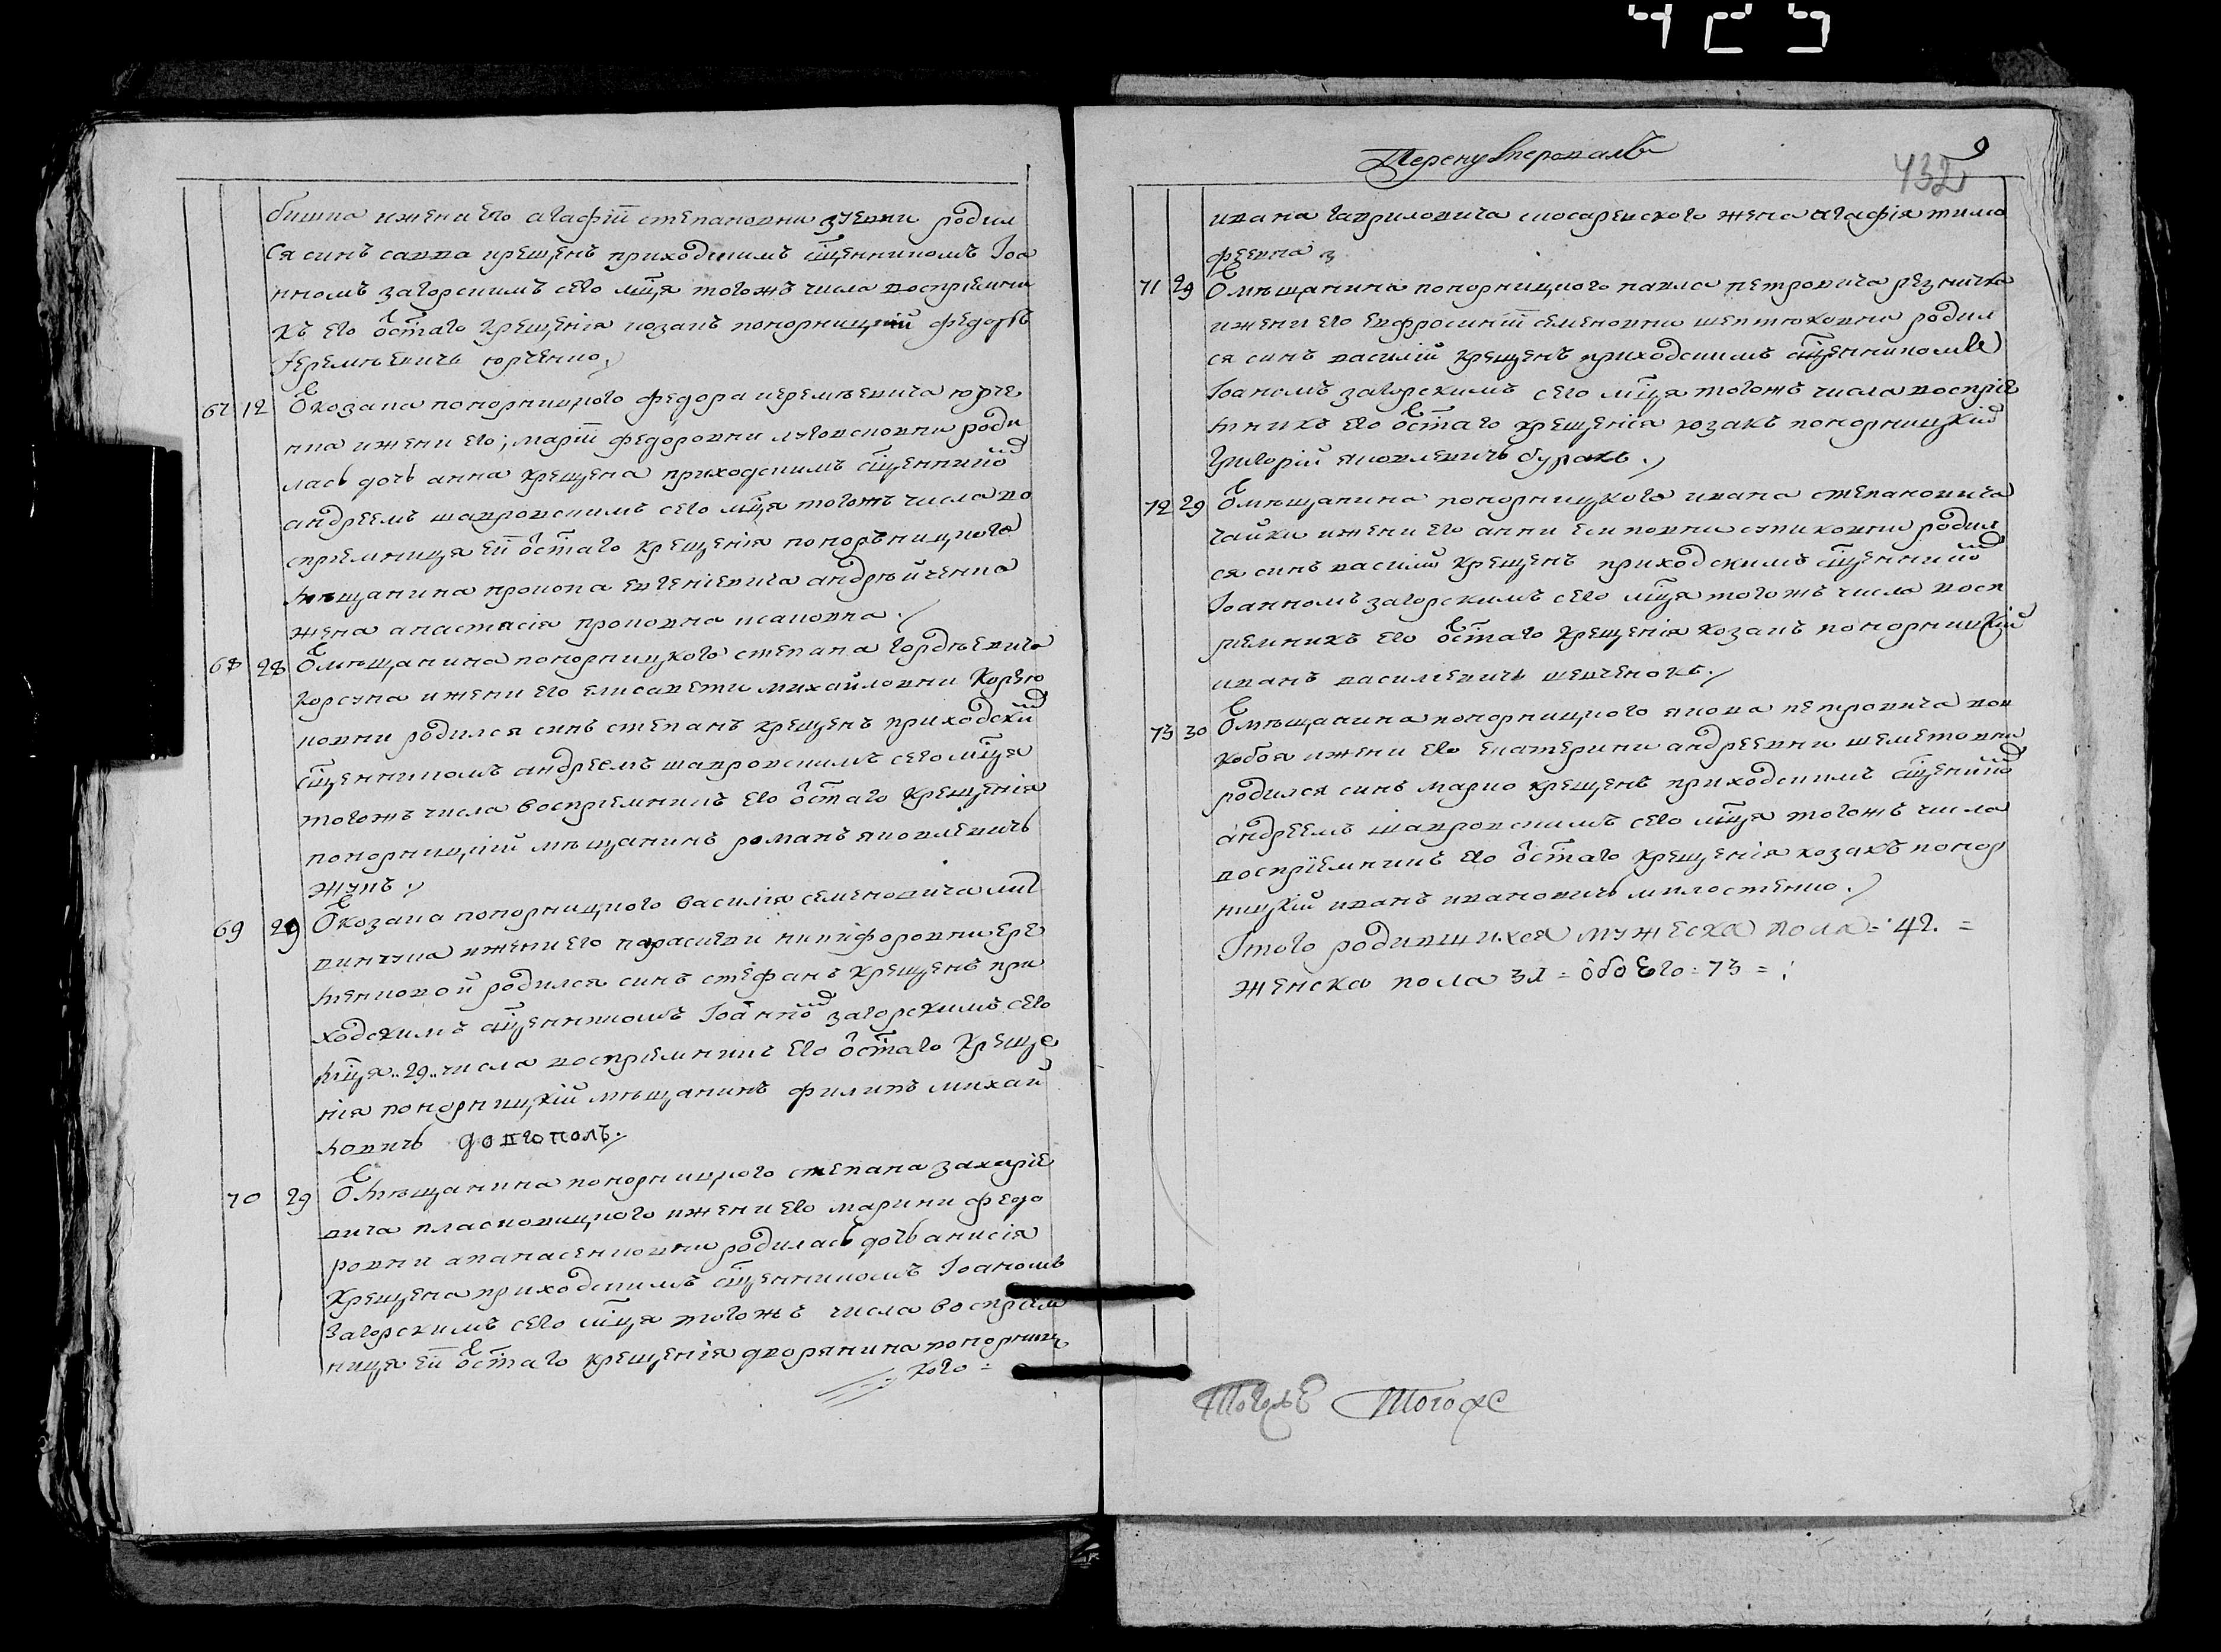 425
432
9
бишка и жени его агафіи степановни зуевни родил
ся синъ савва крещенъ приходскимъ сщенникомъ Іоа
нномъ загорскимъ сего мца тогожъ числа воспріемни
къ его ѿ стаго крещенія козакъ понорницкій федоръ
іеремѣевичъ юрченко.
67 12 Ѿ козака понорницкого федора иеремѣевича юрче
нка и жени его, маріи федоровни луговсковни роди
лась дочь анна крещена приходскимъ сщеннико
андреемъ шавровскимъ сего мца тогожъ числа во
спріемница еи ѿ стаго крещенія понорницкого
мѣщанина прокопа евгеніевича андрѣйченка
жена анастасія проковна исаковна.
68 28 Ѿ мѣщанина понорницкого степана гордѣевича
корсуна и жени его елисавети михайловни Корѣю
ковни родился синъ степанъ крещенъ приходски
сщенникомъ андреемъ шавровскимъ сего мца
тогожъ числа воспріемникъ его ѿ стаго крещенія
понорницкій мѣщанинъ романъ яковлевичъ
жукъ.
69 29 Ѿ козака понорницкого василія семеновича лит
винчука и жени его параскеви никифоровни ере
менковой родился синъ стефанъ крещенъ при
ходскимъ сщенникомъ Іоанно загорскимъ сего
мца..29..числа воспріемникъ его ѿ стаго креще
нія понорницкій мѣщанинъ филипъ михай
ловичъ довгополъ.
70 29 Ѿ мѣщанина понорницкого степана захаріе
вича пласковицкого и жени его марини федо
ровни апанасенковни родилась дочь анисія
крещена приходскимъ сщенникомъ Іоаномъ
загорскимъ сего мца тогожъ числа воспріем
ница еи ѿ стаго крещенія дворянина понорниц
кого =
ивана гавриловича слюсаревского жена агафія тимо
феевна
71 29 Ѿ мѣщанина понорницкого павла петровича резничка
и жени его евфросиніи семеновни шептюховни родил
ся синъ василій крещенъ приходскимъ сщенникомъ
Іоаномъ загорскимъ сего мца тогожъ числа воспріе
мникъ его ѿ стаго крещенія козакъ понорницкій
григорій яковлевичъ буракъ.
72 29 Ѿ мѣщанина понорницкого ивана степановича
чайки и жени его анни евповни супиковни родил
ся синъ василій крещенъ приходскимъ сщеннико
Іоанномъ загорскимъ сего мца тогожъ числа восп
ріемникъ его ѿ стаго крещенія козакъ понорницкій
иванъ василіевичъ шевченокъ.
73 30 Ѿ мѣщанина понорницкого якова петровича вов
кобоя и жени его екатерини андреевни шеметовни
родился синъ марко крещенъ приходскимъ сщенико
андреемъ шавровскимъ сего мца тогожъ числа
воспріемникъ его ѿ стаго крещенія козакъ понор
ницкій иванъ ивановичъ милостенко.
Ітого родившихся мужеска пола = 42. =
женска пола 31 = обоего = 73 =